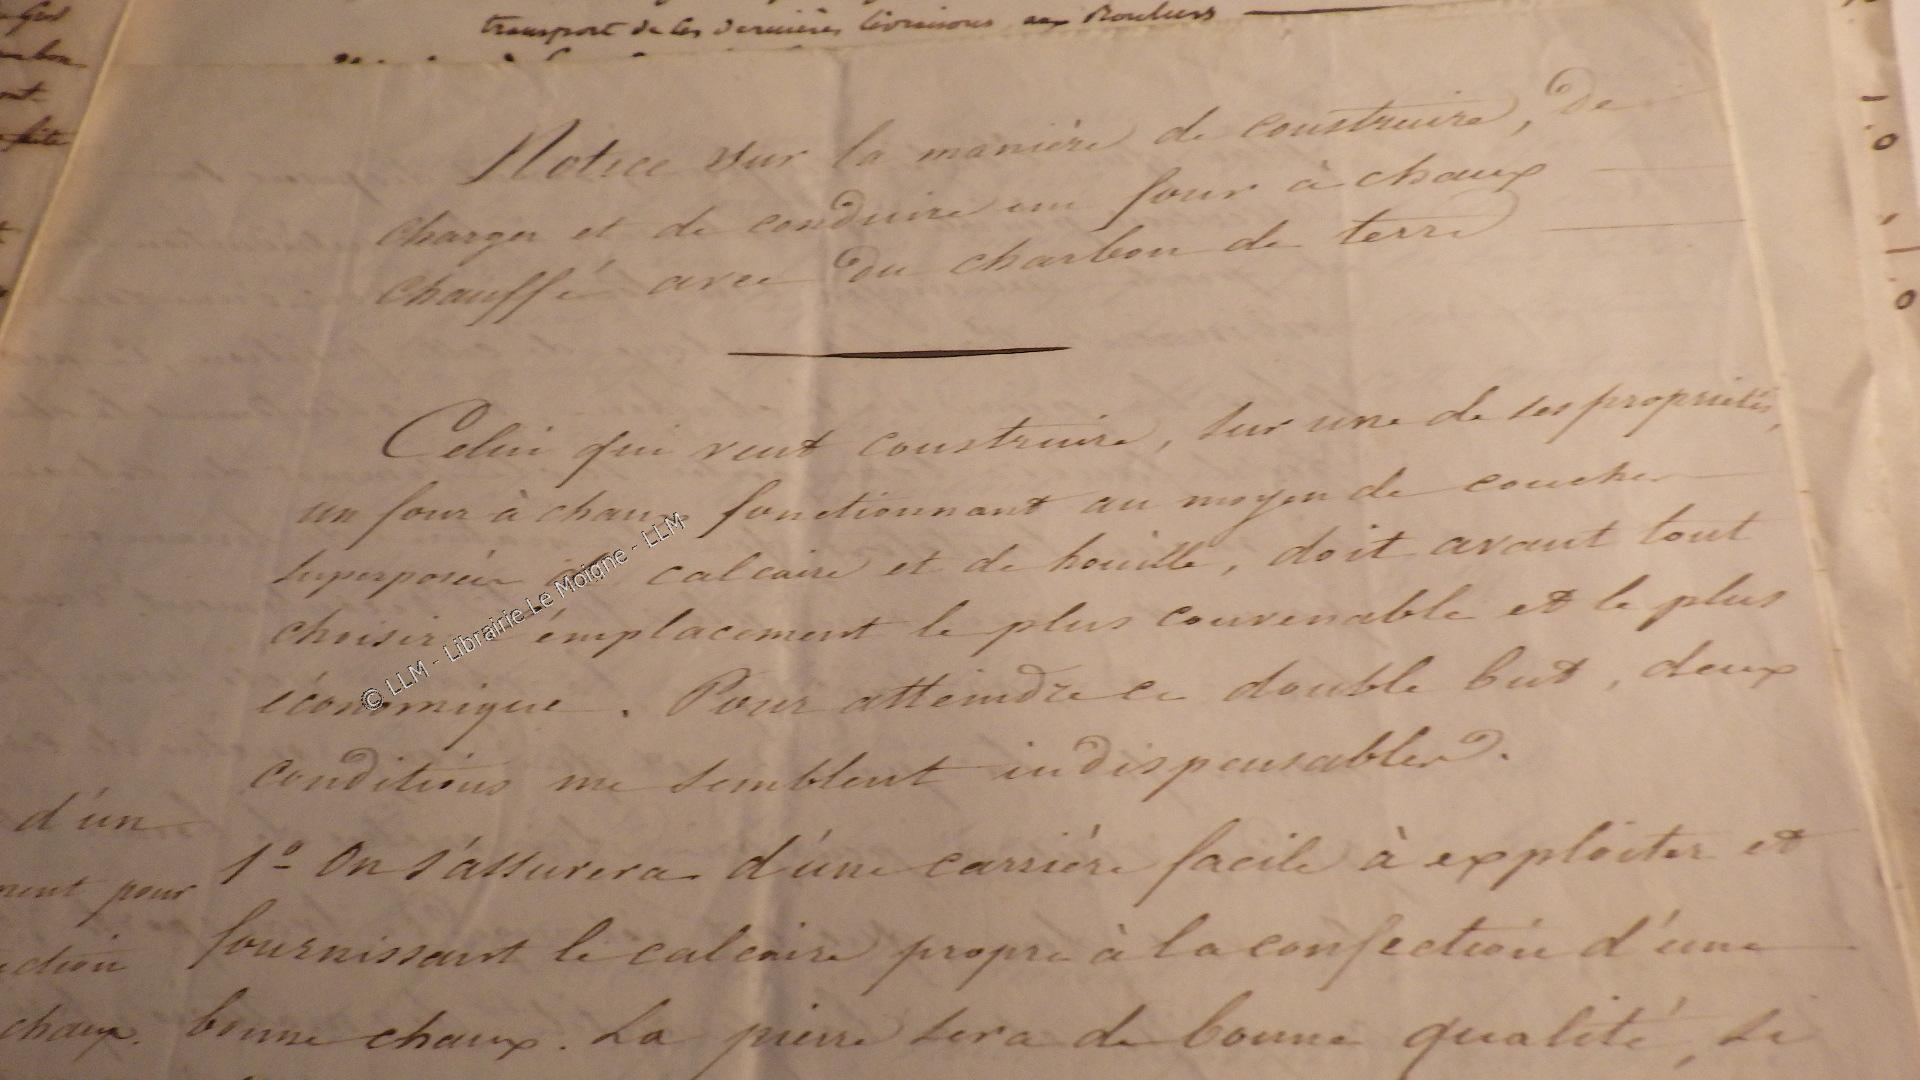 transport de les dernières livraisons aux Rouliers
Notice sur la manière de construire, de
charger et de conduire un four à chaux
chauffé avec du charbon de terre
Celui qui veut construire, sur une de ses propriétés,
un four à chaux fonctionnant au moyen de couches
superposées de calcaire et de houille, doit avant tout
choisir l'émplacement le plus convenable et le plus
économique. Pour atteindre ce double but, deux
conditions me semblent indispensables.
1º On s'assurera d'une carrière facile à exploiter et
fournissant le calcaire propre à la confection d'une
bonne chaux. La pierre sera de bonne qualité, si
d'un
pour
chaux.
© LLM - Librairie Le Moigne - LLM